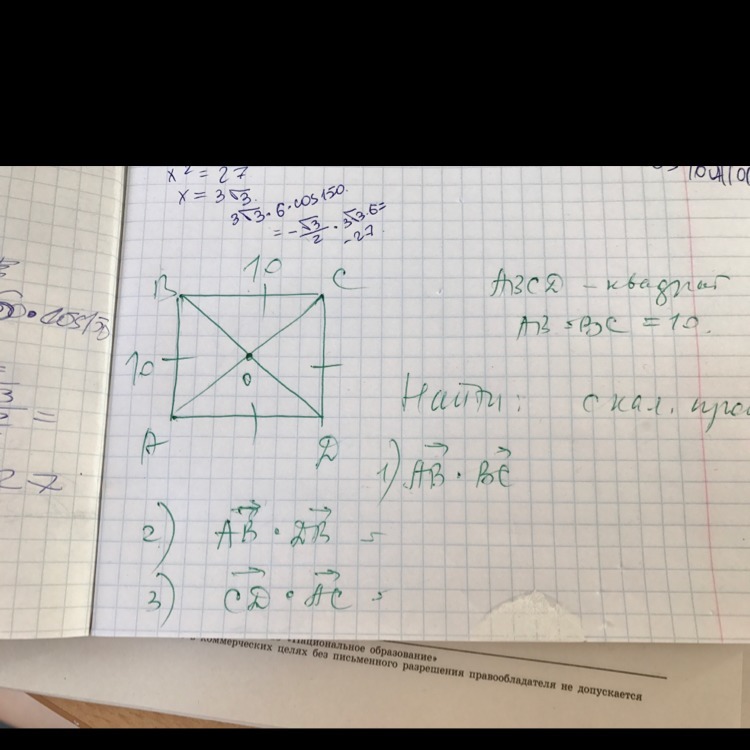 x² = 27
x = 3√3.
3√3 · 6 · cos150.
= -√3/2 · 3√3·6=
-27.
10
B C
10
O
A D
ABCD - квадрат
AB = BC = 10.
Найти: скал.
1) AB · BC
2) AB · DB =
3) CD · AC =
27
«Национальное образование»
коммерческих целях без письменного разрешения правообладателя не допускается